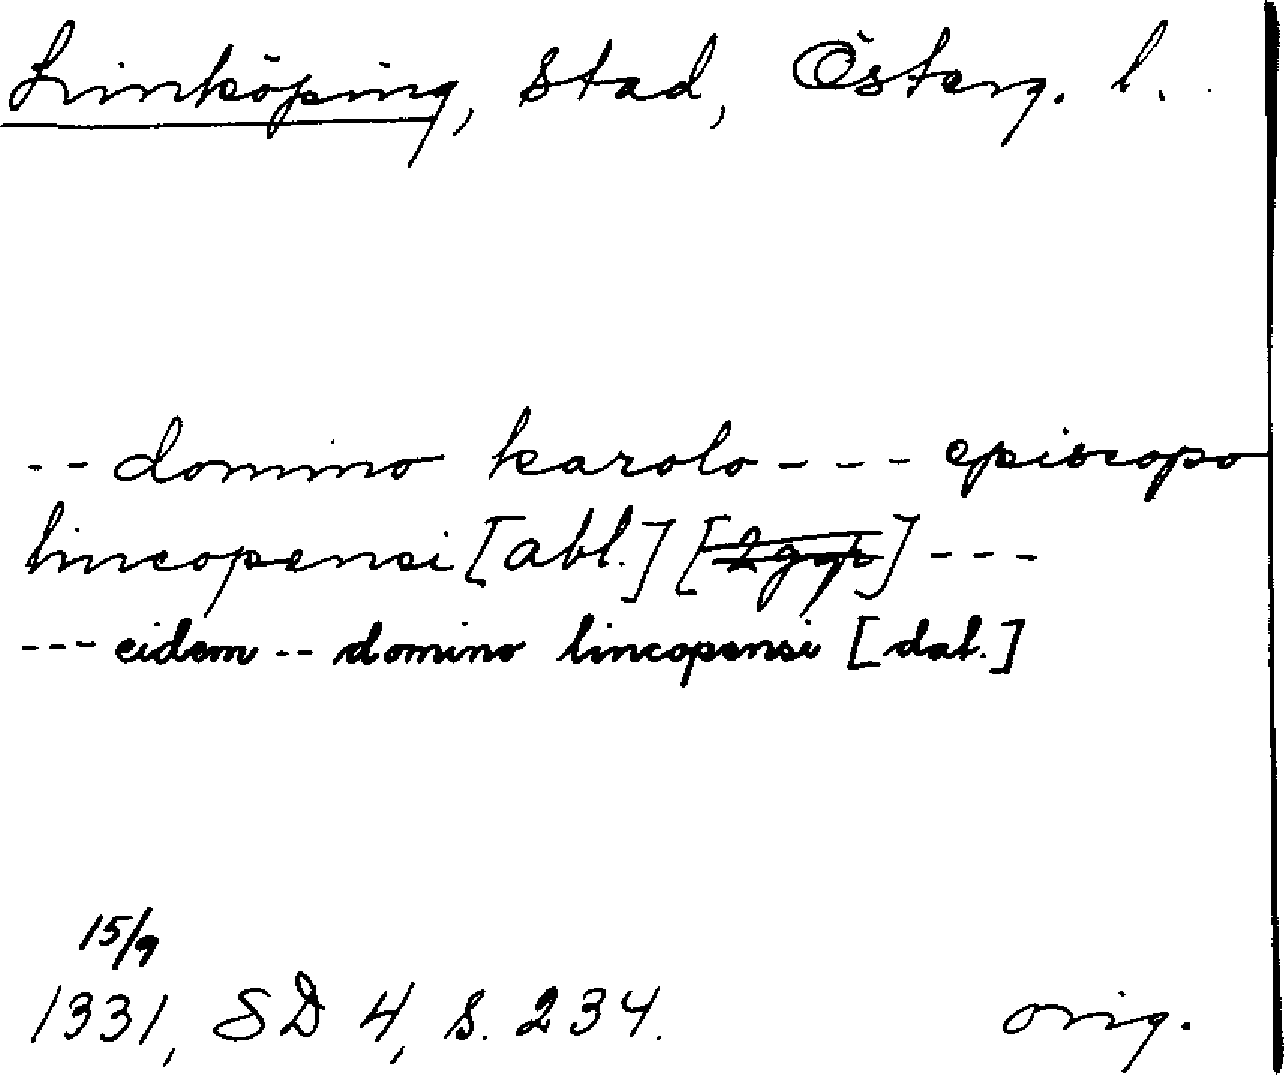 Linköping, stad, Österg. l.
-- domino karolo --- episcopo
lincopensi [abl.] [2 ggr] ---
--- eidem -- domino lincopensi [dat.]
15/9
1331, SD 4, s. 234. orig.